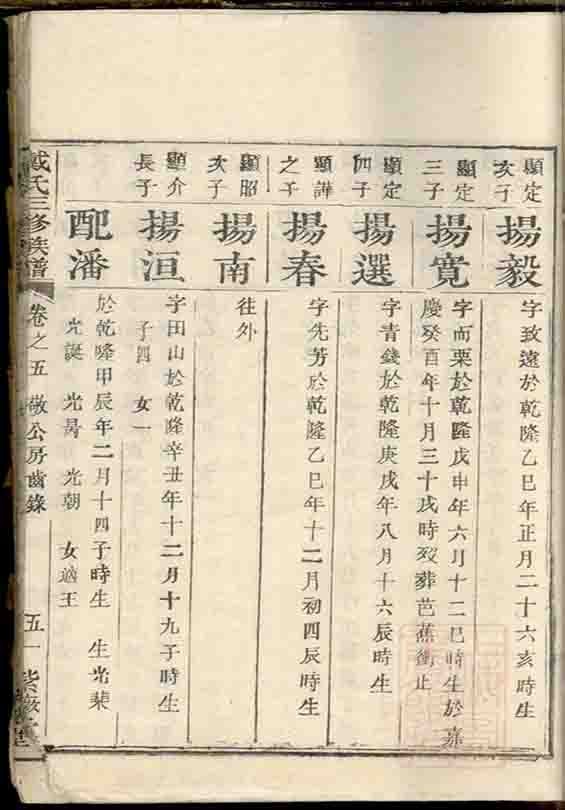 顯定
次子
揚毅
字致遠於乾隆乙巳年正月二十六亥時生
顯定
三子
揚寬
字而栗於乾隆戊申年六月十二巳時生於嘉
慶癸酉年十月三十戌時歿葬芭蕉衝止
顯定
四子
揚選
字青錢於乾隆庚戌年八月十六辰時生
顯譁
之子
揚春
字先芳於乾隆乙巳年十二月初四辰時生
顯昭
次子
揚南
往外
顯介
長子
揚洹
字田山於乾隆辛丑年十二月十九子時生
子四 女一
配潘
於乾隆甲辰年二月十四子時生 生光棐
光誕 光朝 女適王
戴氏三修族譜
卷之五 敬公房齒錄
五一